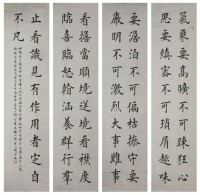 氣象要高曠不可疎狂心
思要縝密不可瑣屑趣味
要澹泊不可偏枯操守要
嚴明不可激烈大事難事
看擔當順境逆境看襟度
臨喜臨怒看涵養群行群
止看識見有作用者定自
不凡